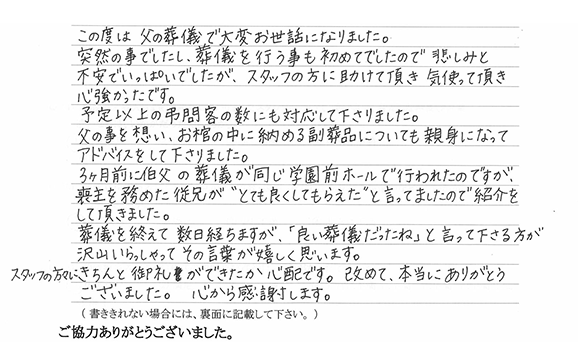 この度は父の葬儀で大変お世話になりました。
突然の事でしたし、葬儀を行う事も初めてでしたので悲しみと
不安でいっぱいでしたが、スタッフの方に助けて頂き気使って頂き
心強かったです。
予定以上の弔問客の数にも対応して下さりました。
父の事を想い、お棺の中に納める副葬品についても親身になって
アドバイスをして下さりました。
3ヶ月前に伯父の葬儀が同じ学園前ホールで行われたのですが、
喪主を務めた従兄が“とても良くしてもらえた”と言ってましたので紹介を
して頂きました。
葬儀を終えて数日経ちますが、「良い葬儀だったね」と言って下さる方が
沢山いらしゃってその言葉が嬉しく思います。
スタッフの方々にきちんと御礼ができたか心配です。改めて、本当にありがとう
ございました。 心から感謝します。
（書ききれない場合には、裏面に記載して下さい。）
ご協力ありがとうございました。